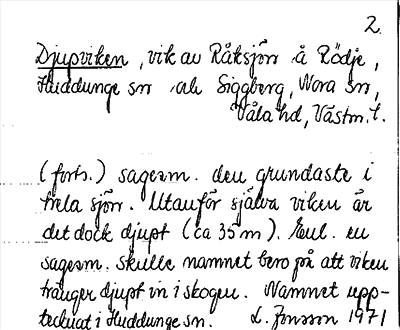 2.
Djupviken, vik av Råksjön å Rödje,
Huddunge sn och Siggberg, Nora sn,
Våla hd, Västm. l.
(forts.) sagesm. den grundaste i
hela sjön. Utanför själva viken är
det dock djupt (ca 35 m). Enl. en
sagesm. skulle namnet bero på att viken
tränger djupt in i skogen. Namnet upp-
tecknat i Huddunge sn. L. Jonsson 1971